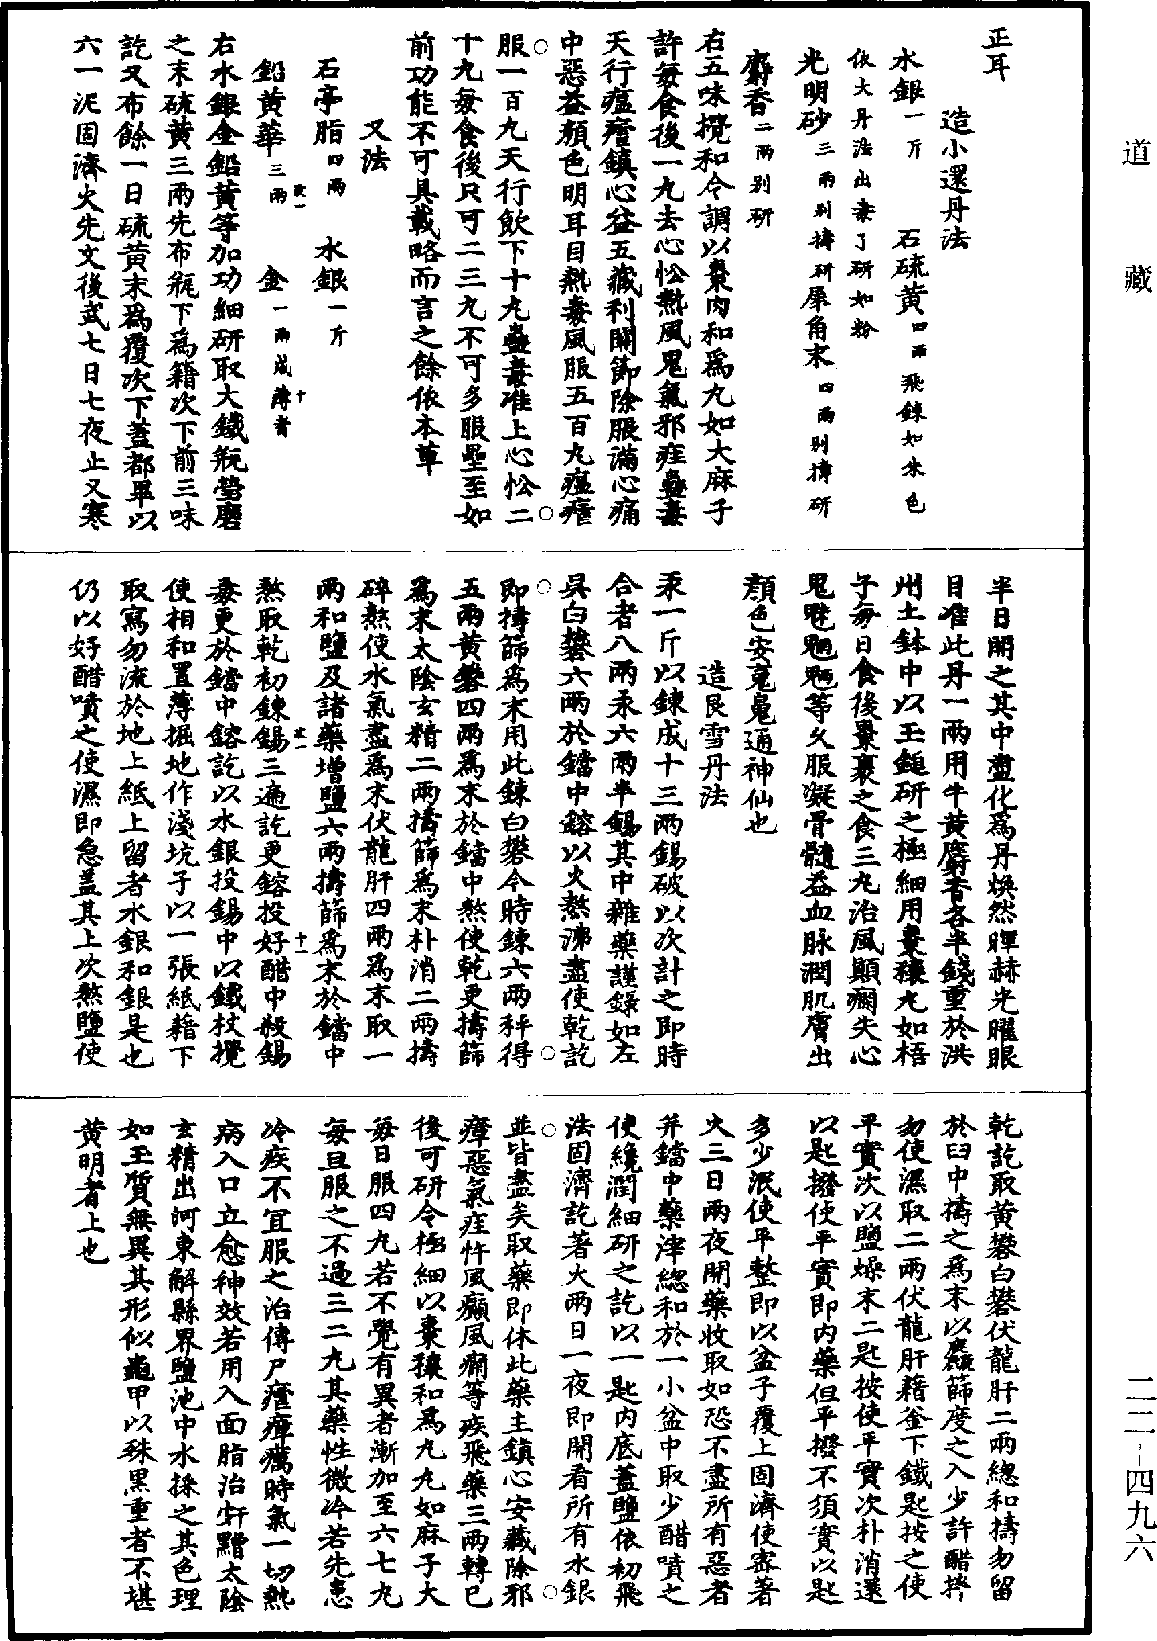 正耳
造小還丹法
水銀一斤　石硫黃四兩飛鍊如朱色
依大丹法出毒了研如粉
光明砂三兩別擣研犀角末四兩別擣研
麝香二兩別研
右五味攪和令調以棗肉和為丸如大麻子
許每食後一丸去心忪熱風鬼氣邪疰蠱毒
天行瘟瘧鎮心益五藏利關節除脹滿心痛
中惡益顏色明耳目熱毒風服五百丸瘟瘧
服一百丸天行飲下十丸蠱毒准上心忪二
十丸每食後只可二三丸不可多服壘至如
前功能不可具載略而言之餘依本草
又法
石亭脂四兩　水銀一斤
鉛黃華三兩　金一兩成薄者
右水銀金鉛黃等加功細研取大鐵瓶瑩磨
之末硫黃三兩先布瓶下為籍次下前三味
訖又布餘一日硫黃末為覆次下蓋都畢以
六一泥固濟火先文後武七日七夜止又寒
半日開之其中盡化為丹煥然暉赫光曜眼
目准此丹一兩用牛黃麝香各半錢重於洪
州土鉢中以玉鎚研之極細用棗穰丸如梧
子每日食後棗裹之食三丸治風顛癇失心
鬼魅魍魎等久服凝骨髓益血脉潤肌膚出
顏色安魂魄通神仙也
造艮雪丹法
汞一斤以鍊成十三兩錫破以次計之即時
合者八兩汞六兩半錫其中雜藥謹錄如左
吳白礬六兩於鐺中鎔以火熬沸盡使乾訖
即擣篩為末用此鍊白礬令時鍊六兩秤得
五兩黃礬四兩為末於鐺中熬使乾更擣篩
為末太陰玄精二兩擣篩為末朴消二兩擣
碎熬使水氣盡為末伏龍肝四兩為末取一
兩和鹽及諸藥增鹽六兩擣篩為末於鐺中
熬取乾初鍊錫三遍訖更鎔投好醋中殺錫
毒更於鐺中鎔訖以水銀投錫中以鐵杖攪
使相和置薄掘地作淺坑子以一張紙藉下
取寫勿流於地上紙上留者水銀和銀是也
仍以好醋噴之使濕即急蓋其上次熬鹽使
乾訖取黃礬白礬伏龍肝二兩總和擣勿留
於臼中擣之為末以麤篩度之入少許醋拌
勿使濕取二兩伏龍肝藉釜下鐵匙按之使
平實次以鹽燥末二匙按使平實次朴消還
以匙撥使平實即內藥但平撥不須實以匙
多少泯使平整即以盆子覆上固濟使密著
火三日兩夜開藥收取如恐不盡所有惡者
并鐺中藥滓總和於一小盆中取少醋噴之
使纔潤細研之訖以一匙內底蓋鹽依初飛
法固濟訖著火兩日一夜即開看所有水銀
並皆盡矣取藥即休此藥主鎮心安藏除邪
瘴惡氣疰忤風癲風癇等疾飛藥三兩轉已
後可研令極細以棗穰和為丸丸如麻子大
每日服四丸若不覺有異者漸加至六七丸
每旦服之不過三二丸其藥性微冷若先患
冷疾不宜服之治傳尸瘧癉癘時氣一切熱
病入口立愈神效若用入面脂治𪽈䵟太陰
玄精出河東解縣界鹽池中水採之其色理
如玉質無異其形似龜甲以殊黑重者不堪
黃明者上也
改一
十
改一
十一
道藏
二二-四九六